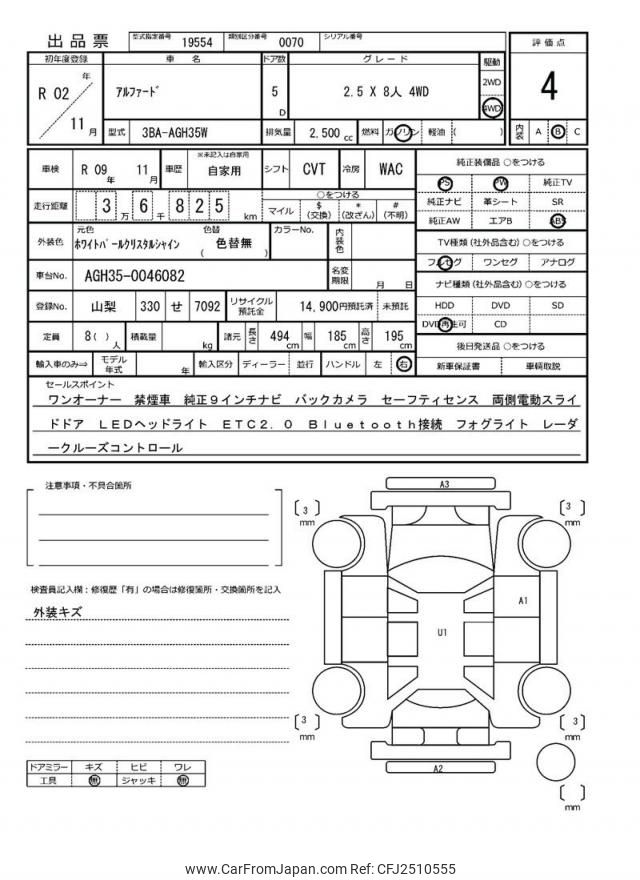 出品票
型式指定番号 19554 類別区分番号 0070 シリアル番号
評価点
4
内装 A B C
初年度登録 車名 ドア数 グレード 駆動
R 02 年 11 月
アルファード 5 D 2.5 X 8人 4WD
2WD
4WD
型式 3BA-AGH35W 排気量 2,500 cc 燃料 ガソリン 軽油 ( )
車検 R 09 年 11 月 車歴 ※未記入は自家用 自家用 シフト CVT 冷房 WAC
走行距離 3 万 6 千 8 2 5 km
○をつける
マイル $ (交換) * (改ざん) # (不明)
外装色 元色 ホワイトパールクリスタルシャイン 色替 ( 色替無 ) カラーNo. 内装色
車台No. AGH35-0046082 名変期限 月 日
登録No. 山梨 330 せ 7092 リサイクル預託金 14,900円預託済 未預託
定員 8( ) 人 積載量 kg 諸元 長さ 494 cm 幅 185 cm 高さ 195 cm
輸入車のみ⇒ モデル年式 年 輸入区分 ディーラー 並行 ハンドル 左 右
純正装備品 ○をつける
PS PW 純正TV
純正ナビ 革シート SR
純正AW エアB ABS
TV種類(社外品含む)○をつける
フルセグ ワンセグ アナログ
ナビ種類(社外品含む)○をつける
HDD DVD SD
DVD再生可 CD
後日発送品 ○をつける
新車保証書 車輌取説
セールスポイント
ワンオーナー 禁煙車 純正9インチナビ バックカメラ セーフティセンス 両側電動スライ
ドドア LEDヘッドライト ETC2.0 Bluetooth接続 フォグライト レーダ
ークルーズコントロール
注意事項・不具合箇所
検査員記入欄:修復歴「有」の場合は修復箇所・交換箇所を記入
外装キズ
ドアミラー キズ ヒビ ワレ
工具 無 ジャッキ 無
A3
[3] mm
[3] mm
A1
U1
[3] mm
[3] mm
A2
[ ] mm
www.CarFromJapan.com Ref: CFJ2510555